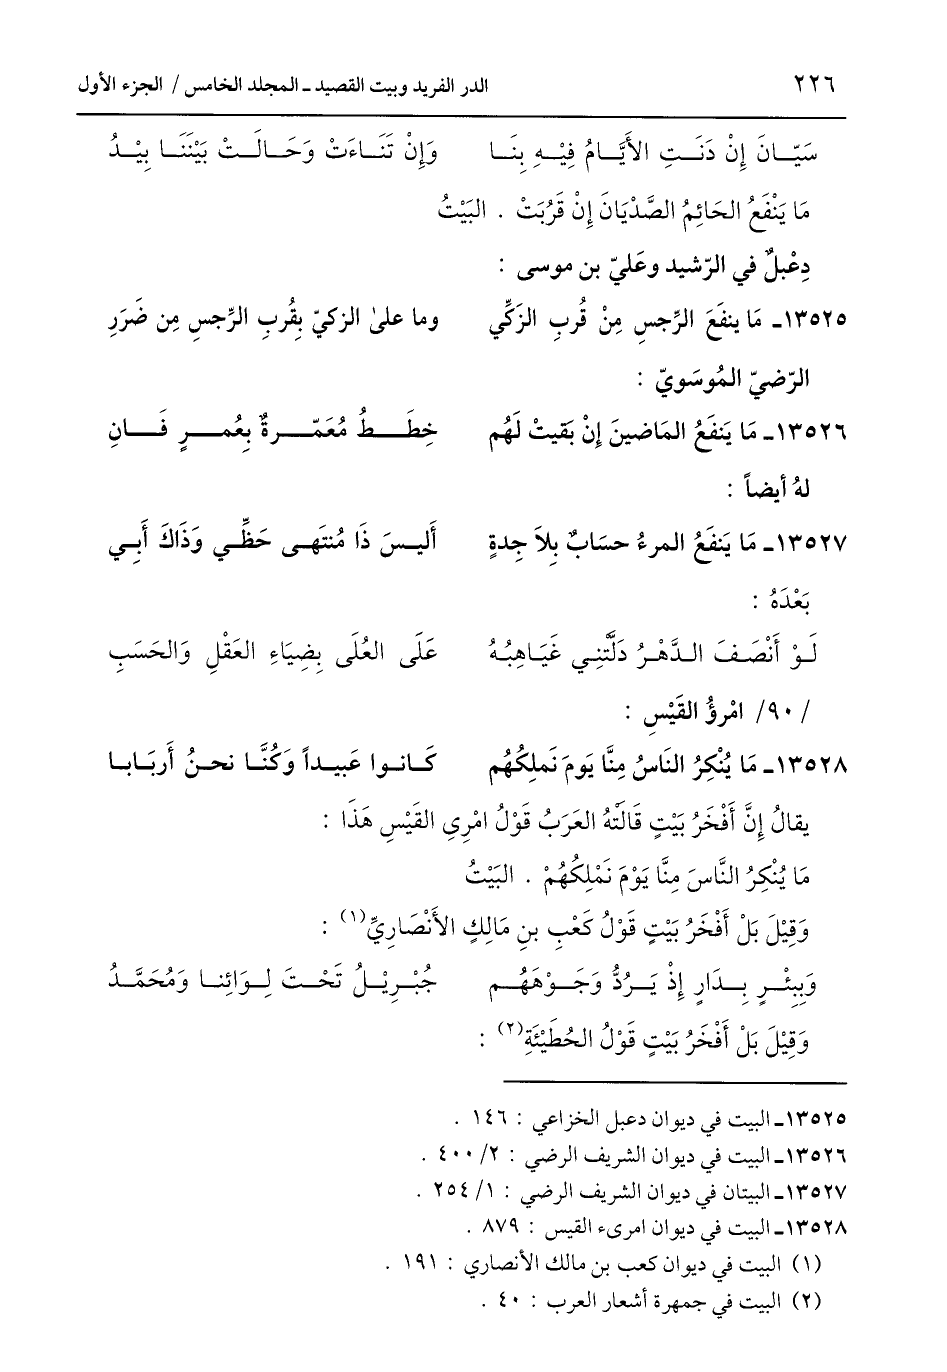 ٢٢٦ الدر الفريد وبيت القصيد ـ المجلد الخامس / الجزء الأول
سَيّـانَ إِنْ دَنَـتِ الأَيَّـامُ فِيْـهِ بِنَـا وَإِنْ تَنَـاءَتْ وَحَـالَـتْ بَيْنَنَـا بِيْـدُ
مَا يَنْفَعُ الحَائِمُ الصَّدْيَانَ إِنْ قَرُبَتْ . البَيْتُ
دِعْبلٌ في الرّشيد وعَليّ بن موسى :
١٣٥٢٥ـ مَا ينفَعَ الرِّجسِ مِنْ قُربِ الزَكِّي وما على الزكيّ بِقُربِ الرِّجسِ مِن ضَرَرِ
الرّضيّ المُوسَويّ :
١٣٥٢٦ـ مَا يَنفَعُ المَاضينَ إِنْ بَقيتْ لَهُم خِطَـطُ مُعَمّـرةٌ بِعُمـرٍ فَـانِ
لهُ أيضاً :
١٣٥٢٧ـ مَا يَنفَعُ المرءُ حسَابٌ بِلاَ جِدةٍ أَليـسَ ذَا مُنتَهـى حَظِّـي وَذَاكَ أَبـي
بَعْدَهُ :
لَـوْ أَنْصَـفَ الـدَّهْـرُ دَلَّتْنِـي غَيَـاهِبُـهُ عَلَى العُلَى بِضِيَاءِ العَقْلِ وَالحَسَبِ
/ ٩٠/ امْرؤُ القَيْسِ :
١٣٥٢٨ـ مَا يُنْكِرُ النَاسُ مِنَّا يَومَ نَملِكُهُم كَـانـوا عَبيـداً وَكُنَّـا نحـنُ أَربَـابـا
يقالُ إِنَّ أَفْخَرُ بَيْتٍ قَالَتْهُ العَرَبُ قَوْلُ امْرِي القَيْسِ هَذَا :
مَا يُنْكِرُ النَّاسَ مِنَّا يَوْمَ نَمْلِكُهُمْ . البَيْتُ
وَقِيْلَ بَلْ أَفْخَرُ بَيْتٍ قَوْلُ كَعْبِ بنِ مَالِكٍ الأَنْصَارِيِّ(١) :
وَبِبِئْـرِ بَـدَارٍ إِذْ يَـرُدُّ وَجَـوْهَهُـم جُبْـرِيْـلُ تَحْـتَ لِـوَائِنـا وَمُحَمَّـدُ
وَقِيْلَ بَلْ أَفْخَرُ بَيْتٍ قَوْلُ الحُطَيْئَةِ(٢) :
١٣٥٢٥ـ البيت في ديوان دعبل الخزاعي : ١٤٦ .
١٣٥٢٦ـ البيت في ديوان الشريف الرضي : ٢/ ٤٠٠ .
١٣٥٢٧ـ البيتان في ديوان الشريف الرضي : ١/ ٢٥٤ .
١٣٥٢٨ـ البيت في ديوان امرىء القيس : ٨٧٩ .
(١) البيت في ديوان كعب بن مالك الأنصاري : ١٩١ .
(٢) البيت في جمهرة أشعار العرب : ٤٠ .